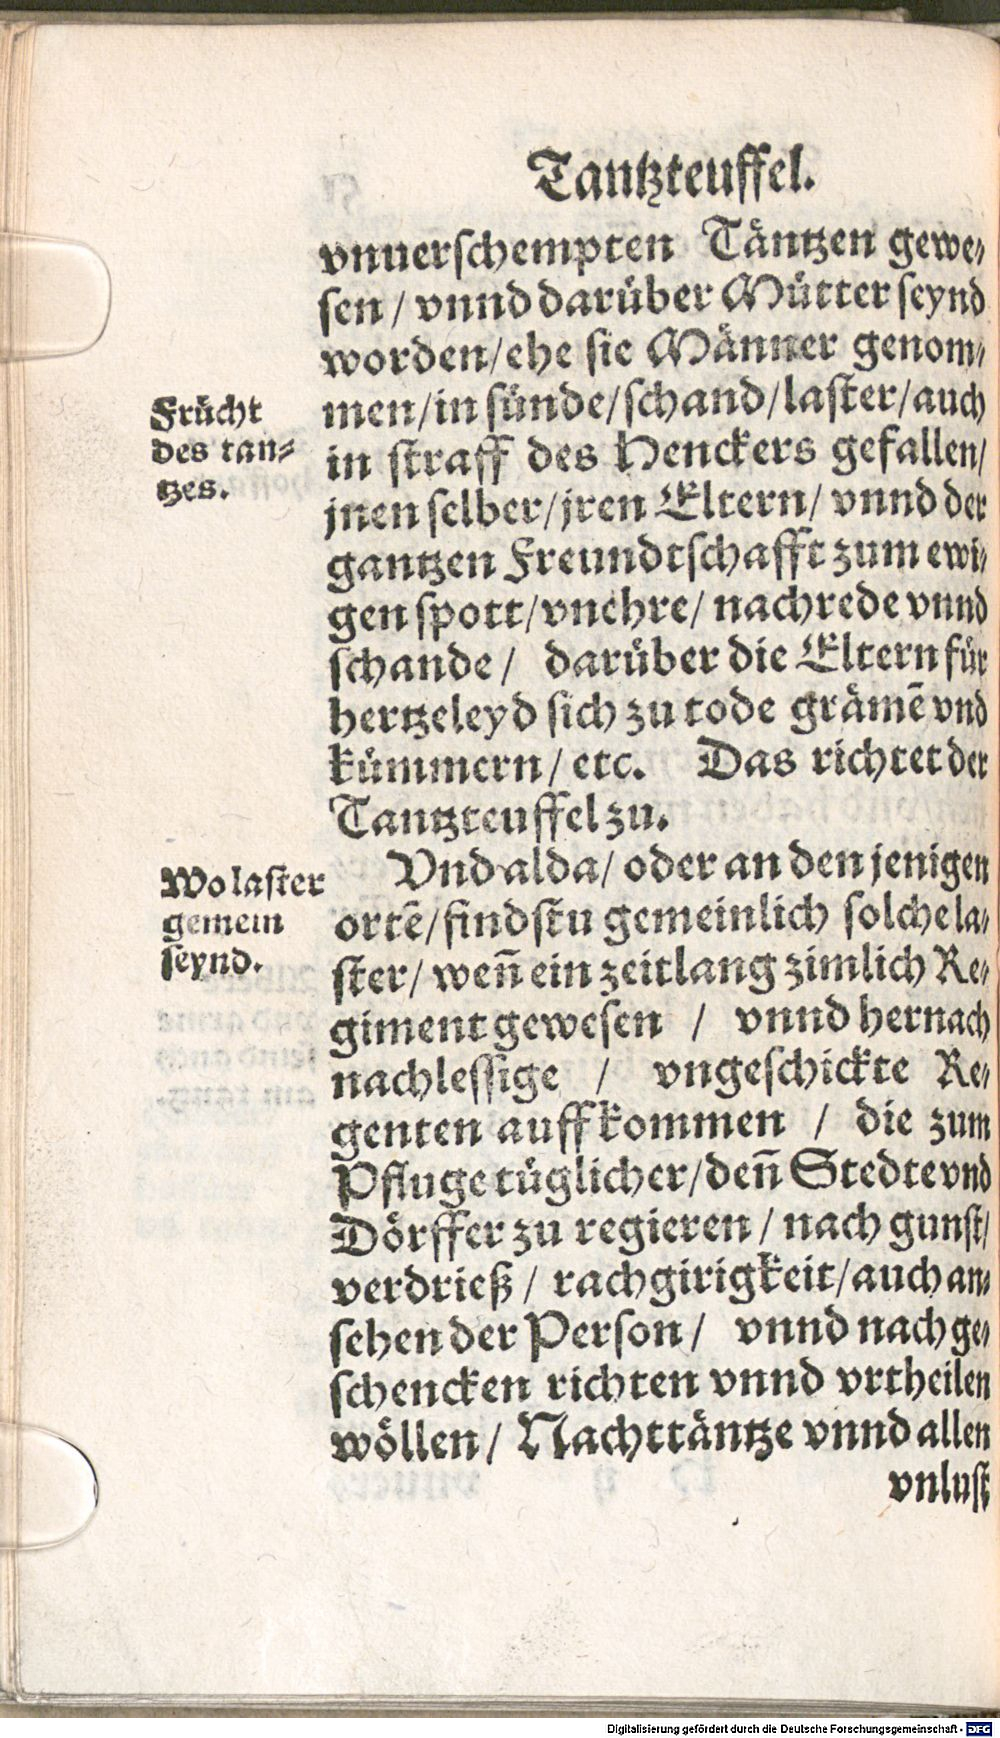 Tantzteuffel.
vnuerschempten Täntzen gewe-
sen / vnnd darüber Mütter seynd
worden/ehe sie Männer genom-
men/in sünde/schand/laster/auch
in straff des Henckers gefallen/
jnen selber/jren Eltern/ vnnd der
gantzen Freundtschafft zum ewi-
gen spott/vnehre/ nachrede vnnd
schande / darüber die Eltern für
hertzeleyd sich zu tode grämē vnd
kümmern / etc. Das richtet der
Tantzteuffel zu.
Vnd alda/ oder an den jenigen
ortē/findstu gemeinlich solche la-
ster/ weñ ein zeitlang zimlich Re-
giment gewesen / vnnd hernach
nachlessige / vngeschickte Re-
genten auffkommen / die zum
Pfluge tüglicher/deñ Stedte vnd
Dörffer zu regieren / nach gunst/
verdrieß / rachgirigkeit/auch an-
sehen der Person / vnnd nach ge-
schencken richten vnnd vrtheilen
wöllen / Nachttäntze vnnd allen
vnlust
Frücht
des tan-
tzes.
Wo laster
gemein
seynd.
Digitalisierung gefördert durch die Deutsche Forschungsgemeinschaft - DFG